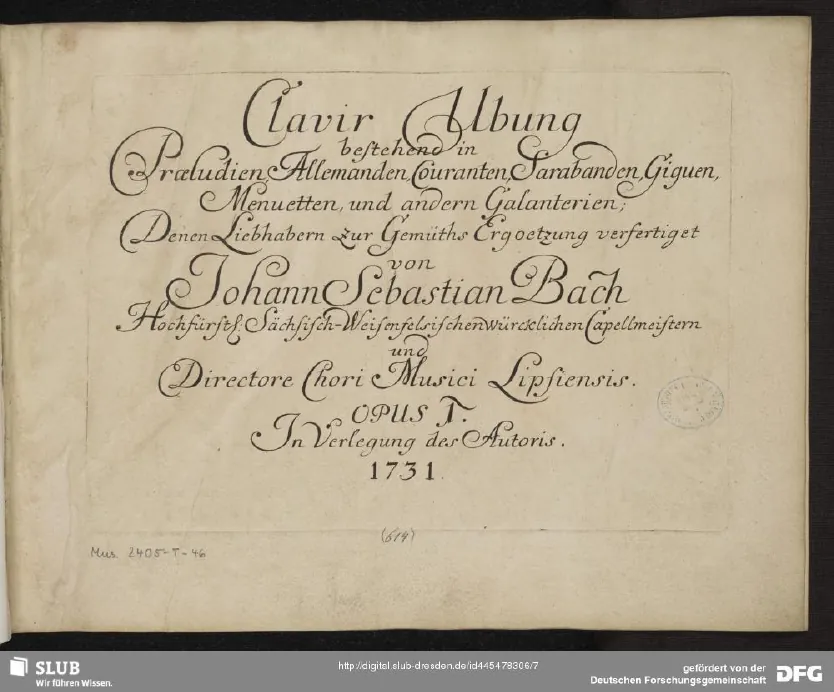 Clavir Ubung
bestehend in
Præludien, Allemanden, Couranten, Sarabanden, Giguen,
Menuetten, und andern Galanterien;
Denen Liebhabern zur Gemüths Ergoetzung verfertiget
von
Johann Sebastian Bach
Hochfürstl. Sächsisch-Weisenfelsischen würcklichen Capellmeistern
und
Directore Chori Musici Lipsiensis.
OPUS I.
In Verlegung des Autoris.
1731.
(619)
Mus. 2405-T-46
SLUB
Wir führen Wissen.
http://digital.slub-dresden.de/id445478306/7
gefördert von der
Deutschen Forschungsgemeinschaft
DFG